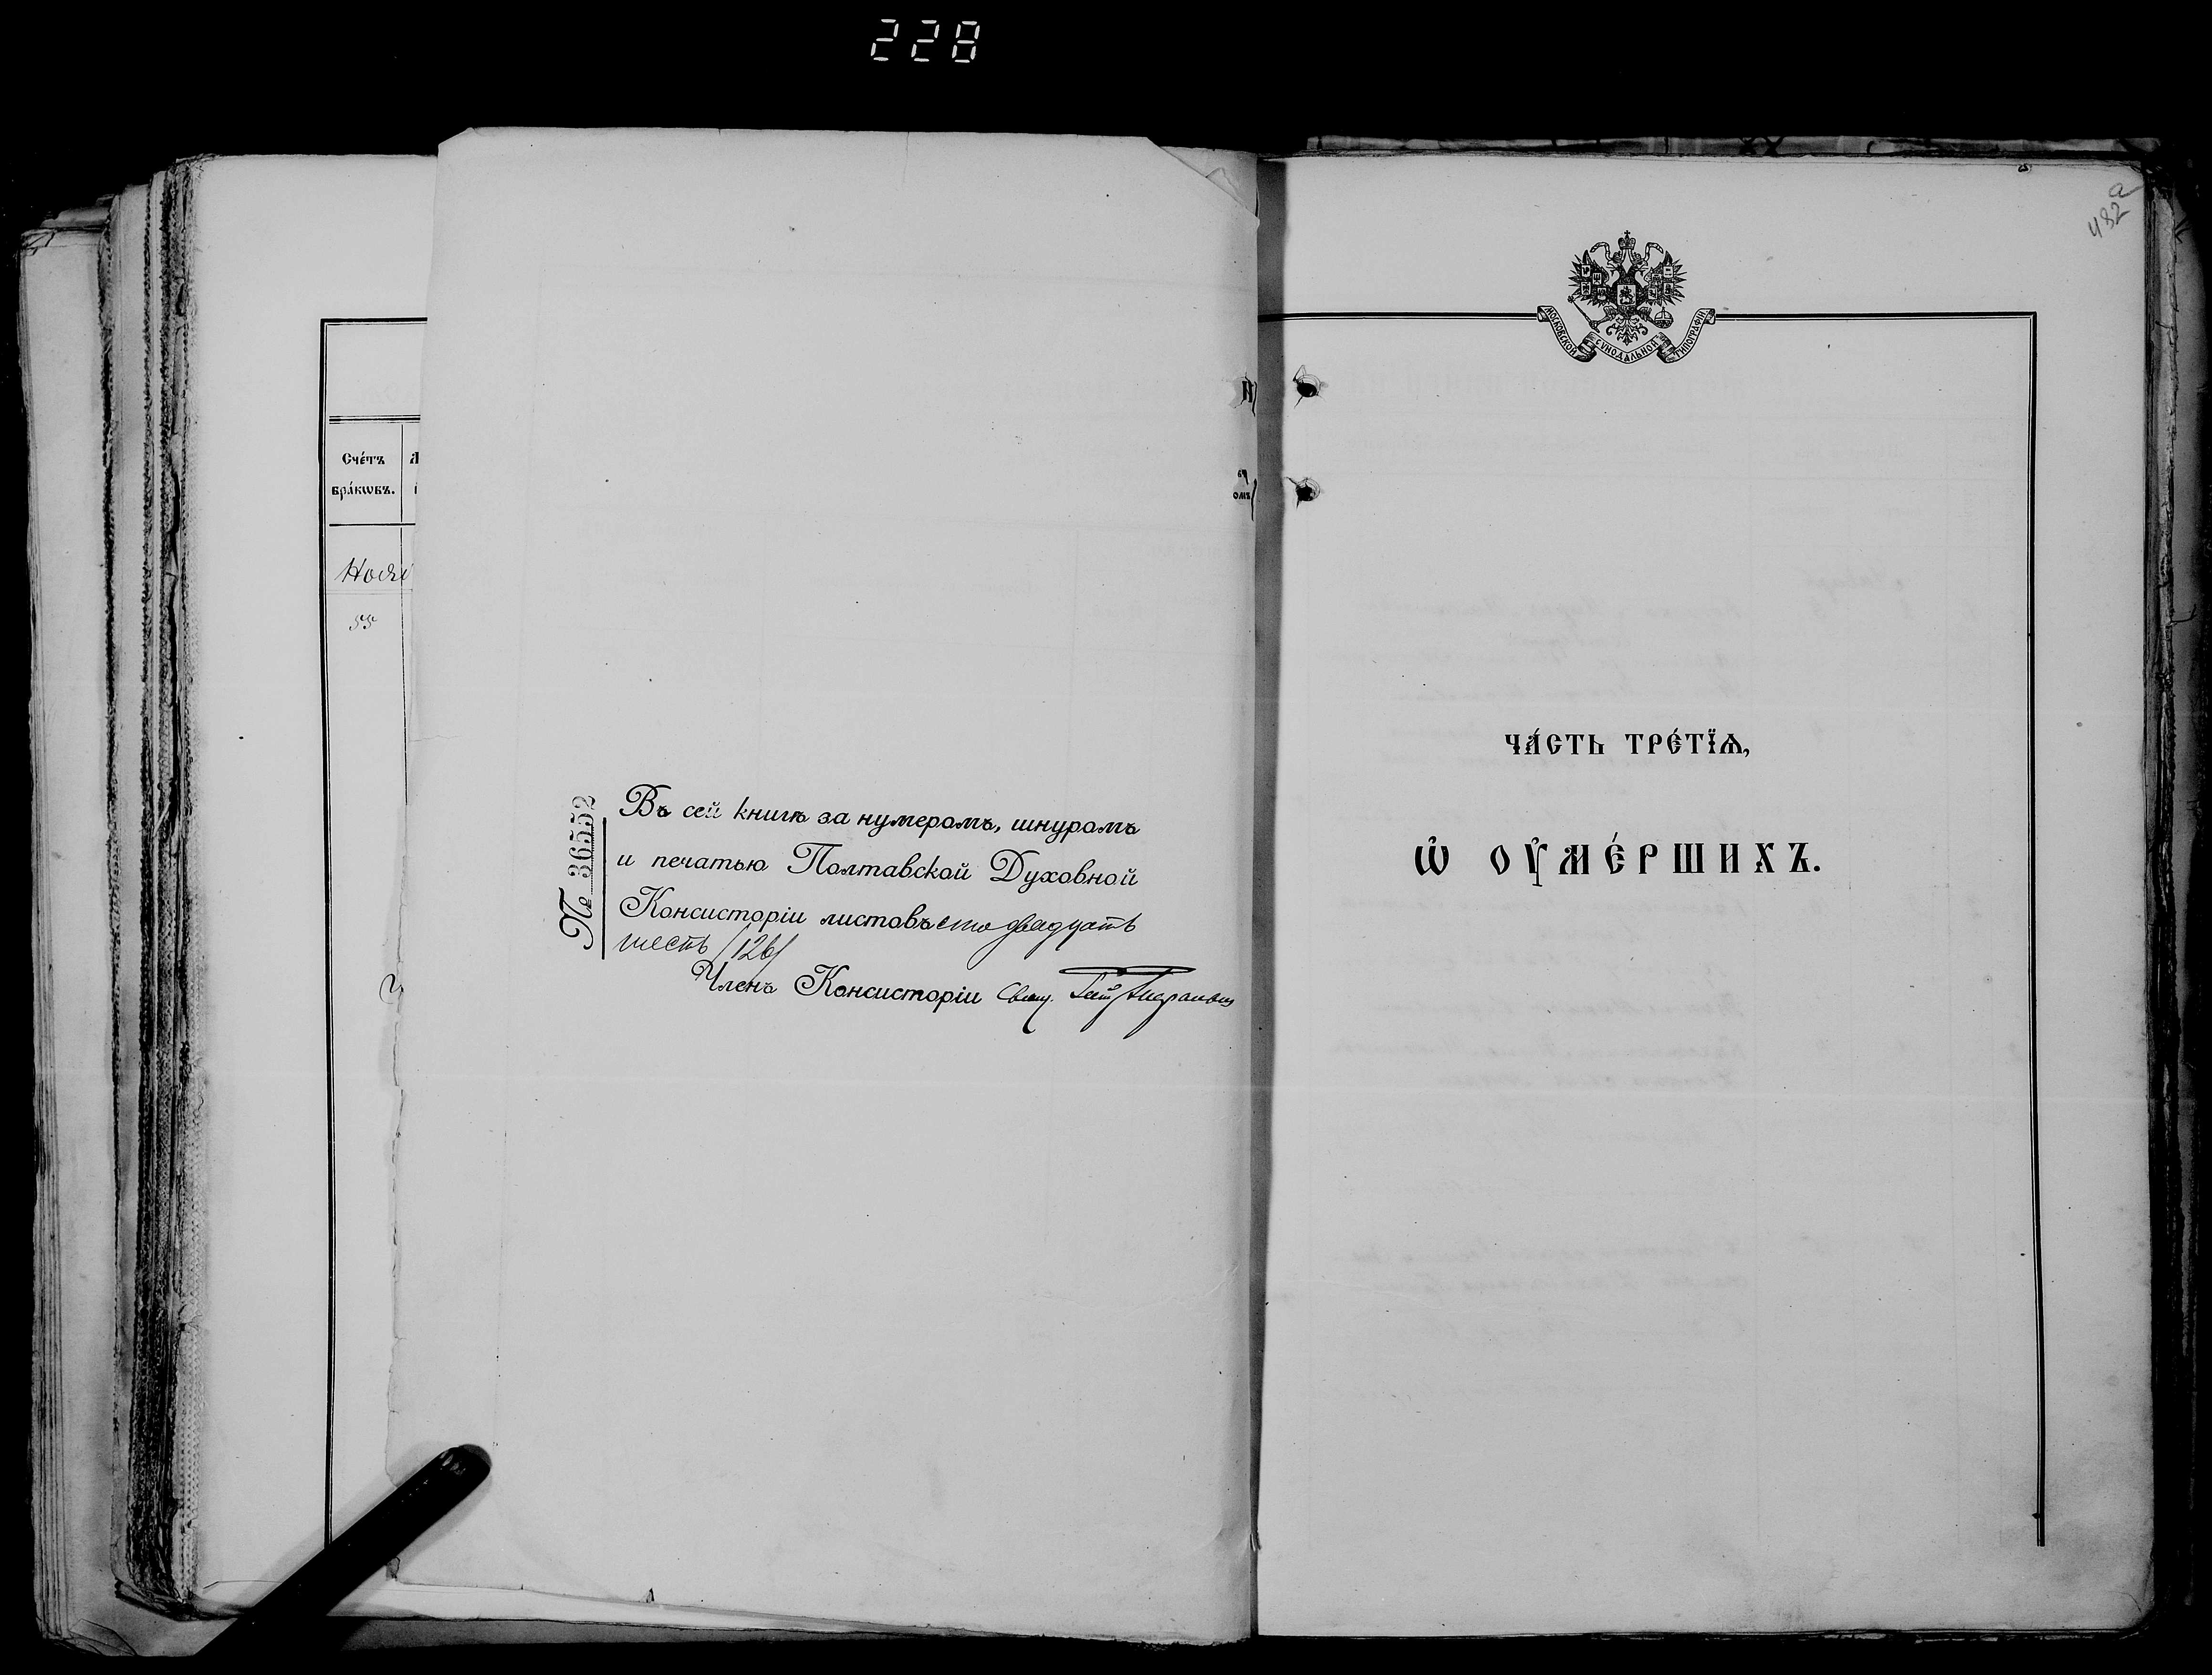 228
Счéтъ
бра́кѡвъ.
55
№ 36552
Въ сей книгѣ за нумеромъ, шнуромъ
и печатью Полтавской Духовной
Консисторіи листовъ сто двадцать
шесть /126/
Членъ Консисторіи Свящ.
482 а
МОСКОВСКОЙ СѴНОДАЛЬНОЙ ТИПОГРАФІИ
ЧА́СТЬ ТРЕ́ТЇѦ,
Ѡ҆ ОУ҆МЕ́РШИХЪ.